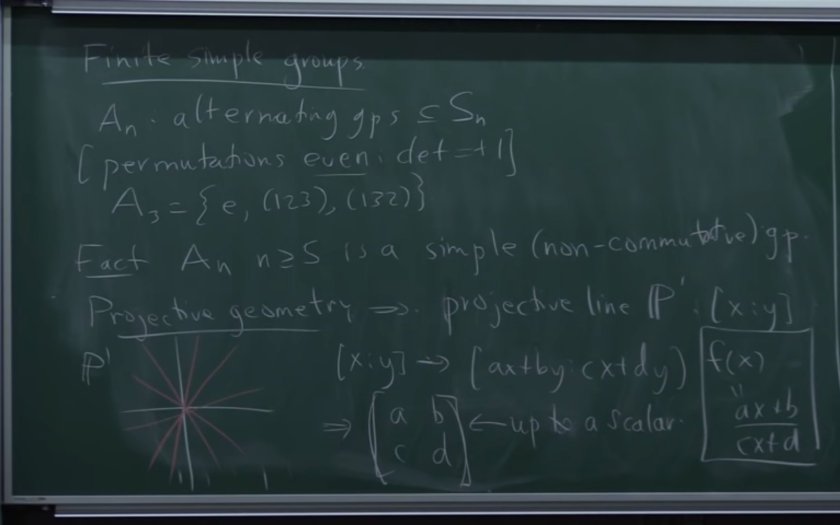 Finite simple groups.
An : alternating gps ⊆ Sn
[permutations even: det = +1]
A3 = {e, (123), (132)}
Fact An n≥5 is a simple (non-commutative) gp.
Projective geometry ⇒ projective line P¹ : [x:y]
P¹ [x:y] → [ax+by : cx+dy) f(x)
⇒ [a b ← up to a scalar. " ax+b
c d] cx+d